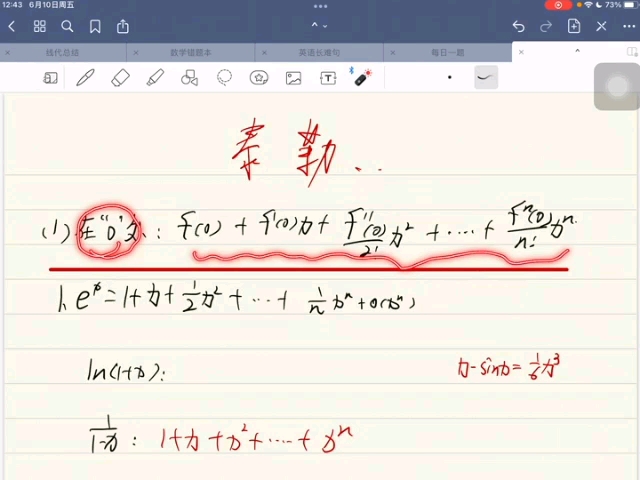 12:43 6月10日周五
73%
线代总结 数学错题本 英语长难句 每日一题
T
泰勒..
(1).在“0”处: f(0) + f'(0)x + f''(0)/2! x² + ···· + fⁿ(0)/n! xⁿ
1. eˣ = 1+x+ 1/2 x² + ··· + 1/n xⁿ + o(xⁿ)
ln(1+x):
x-sinx = 1/6 x³
1/(1-x): 1+x+x²+····+xⁿ